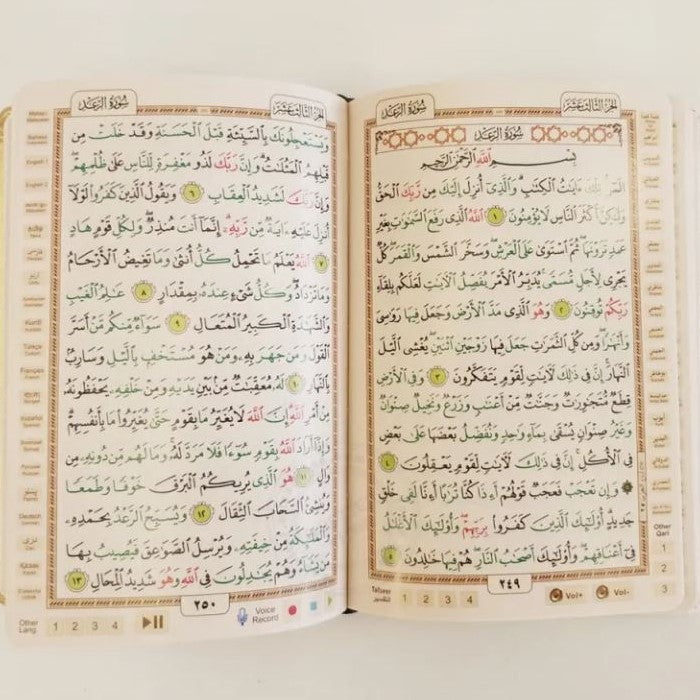 سُورَةُ الرَّعْدِ الجُزْءُ الثَّالِثَ عَشَرَ
سُورَةُ الرَّعْدِ
بِسْمِ اللَّهِ الرَّحْمَٰنِ الرَّحِيمِ
الٓمٓر تِلْكَ ءَايَٰتُ الْكِتَٰبِ وَالَّذِىٓ أُنزِلَ إِلَيْكَ مِن رَّبِّكَ الْحَقُّ
وَلَٰكِنَّ أَكْثَرَ النَّاسِ لَا يُؤْمِنُونَ ١ اللَّهُ الَّذِى رَفَعَ السَّمَٰوَٰتِ بِغَيْرِ
عَمَدٍ تَرَوْنَهَا ثُمَّ اسْتَوَىٰ عَلَى الْعَرْشِ وَسَخَّرَ الشَّمْسَ وَالْقَمَرَ كُلٌّ
يَجْرِى لِأَجَلٍ مُّسَمًّى يُدَبِّرُ الْأَمْرَ يُفَصِّلُ الْءَايَٰتِ لَعَلَّكُم بِلِقَآءِ
رَبِّكُمْ تُوقِنُونَ ٢ وَهُوَ الَّذِى مَدَّ الْأَرْضَ وَجَعَلَ فِيهَا رَوَٰسِىَ
وَأَنْهَٰرًا وَمِن كُلِّ الثَّمَرَٰتِ جَعَلَ فِيهَا زَوْجَيْنِ اثْنَيْنِ يُغْشِى الَّيْلَ
النَّهَارَ إِنَّ فِى ذَٰلِكَ لَءَايَٰتٍ لِّقَوْمٍ يَتَفَكَّرُونَ ٣ وَفِى الْأَرْضِ
قِطَعٌ مُّتَجَٰوِرَٰتٌ وَجَنَّٰتٌ مِّنْ أَعْنَٰبٍ وَزَرْعٌ وَنَخِيلٌ صِنْوَانٌ
وَغَيْرُ صِنْوَانٍ يُسْقَىٰ بِمَآءٍ وَٰحِدٍ وَنُفَضِّلُ بَعْضَهَا عَلَىٰ بَعْضٍ
فِى الْأُكُلِ إِنَّ فِى ذَٰلِكَ لَءَايَٰتٍ لِّقَوْمٍ يَعْقِلُونَ ٤
وَإِن تَعْجَبْ فَعَجَبٌ قَوْلُهُمْ أَءِذَا كُنَّا تُرَٰبًا أَءِنَّا لَفِى خَلْقٍ
جَدِيدٍ أُو۟لَٰٓئِكَ الَّذِينَ كَفَرُوا۟ بِرَبِّهِمْ وَأُو۟لَٰٓئِكَ الْأَغْلَٰلُ
فِىٓ أَعْنَاقِهِمْ وَأُو۟لَٰٓئِكَ أَصْحَٰبُ النَّارِ هُمْ فِيهَا خَٰلِدُونَ ٥
٢٤٩
Other Qari
1
2
3
Tafseer 1 2 3 4 Vol+ Vol-
سُورَةُ الرَّعْدِ الجُزْءُ الثَّالِثَ عَشَرَ
وَيَسْتَعْجِلُونَكَ بِالسَّيِّئَةِ قَبْلَ الْحَسَنَةِ وَقَدْ خَلَتْ مِن
قَبْلِهِمُ الْمَثُلَٰتُ وَإِنَّ رَبَّكَ لَذُو مَغْفِرَةٍ لِّلنَّاسِ عَلَىٰ ظُلْمِهِمْ
وَإِنَّ رَبَّكَ لَشَدِيدُ الْعِقَابِ ٦ وَيَقُولُ الَّذِينَ كَفَرُوا۟ لَوْلَآ
أُنزِلَ عَلَيْهِ ءَايَةٌ مِّن رَّبِّهِۦٓ إِنَّمَآ أَنتَ مُنذِرٌ وَلِكُلِّ قَوْمٍ هَادٍ
٧ اللَّهُ يَعْلَمُ مَا تَحْمِلُ كُلُّ أُنثَىٰ وَمَا تَغِيضُ الْأَرْحَامُ
وَمَا تَزْدَادُ وَكُلُّ شَىْءٍ عِندَهُۥ بِمِقْدَارٍ ٨ عَٰلِمُ الْغَيْبِ
وَالشَّهَٰدَةِ الْكَبِيرُ الْمُتَعَالِ ٩ سَوَآءٌ مِّنكُم مَّنْ أَسَرَّ
الْقَوْلَ وَمَن جَهَرَ بِهِۦ وَمَنْ هُوَ مُسْتَخْفٍۭ بِالَّيْلِ وَسَارِبٌۢ
بِالنَّهَارِ ١٠ لَهُۥ مُعَقِّبَٰتٌ مِّنۢ بَيْنِ يَدَيْهِ وَمِنْ خَلْفِهِۦ يَحْفَظُونَهُۥ
مِنْ أَمْرِ اللَّهِ إِنَّ اللَّهَ لَا يُغَيِّرُ مَا بِقَوْمٍ حَتَّىٰ يُغَيِّرُوا۟ مَا بِأَنفُسِهِمْ
وَإِذَآ أَرَادَ اللَّهُ بِقَوْمٍ سُوٓءًا فَلَا مَرَدَّ لَهُۥ وَمَا لَهُم مِّن دُونِهِۦ مِن
وَالٍ ١١ هُوَ الَّذِى يُرِيكُمُ الْبَرْقَ خَوْفًا وَطَمَعًا
وَيُنشِئُ السَّحَابَ الثِّقَالَ ١٢ وَيُسَبِّحُ الرَّعْدُ بِحَمْدِهِۦ
وَالْمَلَٰٓئِكَةُ مِنْ خِيفَتِهِۦ وَيُرْسِلُ الصَّوَٰعِقَ فَيُصِيبُ بِهَا
مَن يَشَآءُ وَهُمْ يُجَٰدِلُونَ فِى اللَّهِ وَهُوَ شَدِيدُ الْمِحَالِ ١٣
٢٥٠
English 1
English 2
اردو
Türkçe
Français
Español
Deutsch
Other Lang. 1 2 3 4 Voice Record